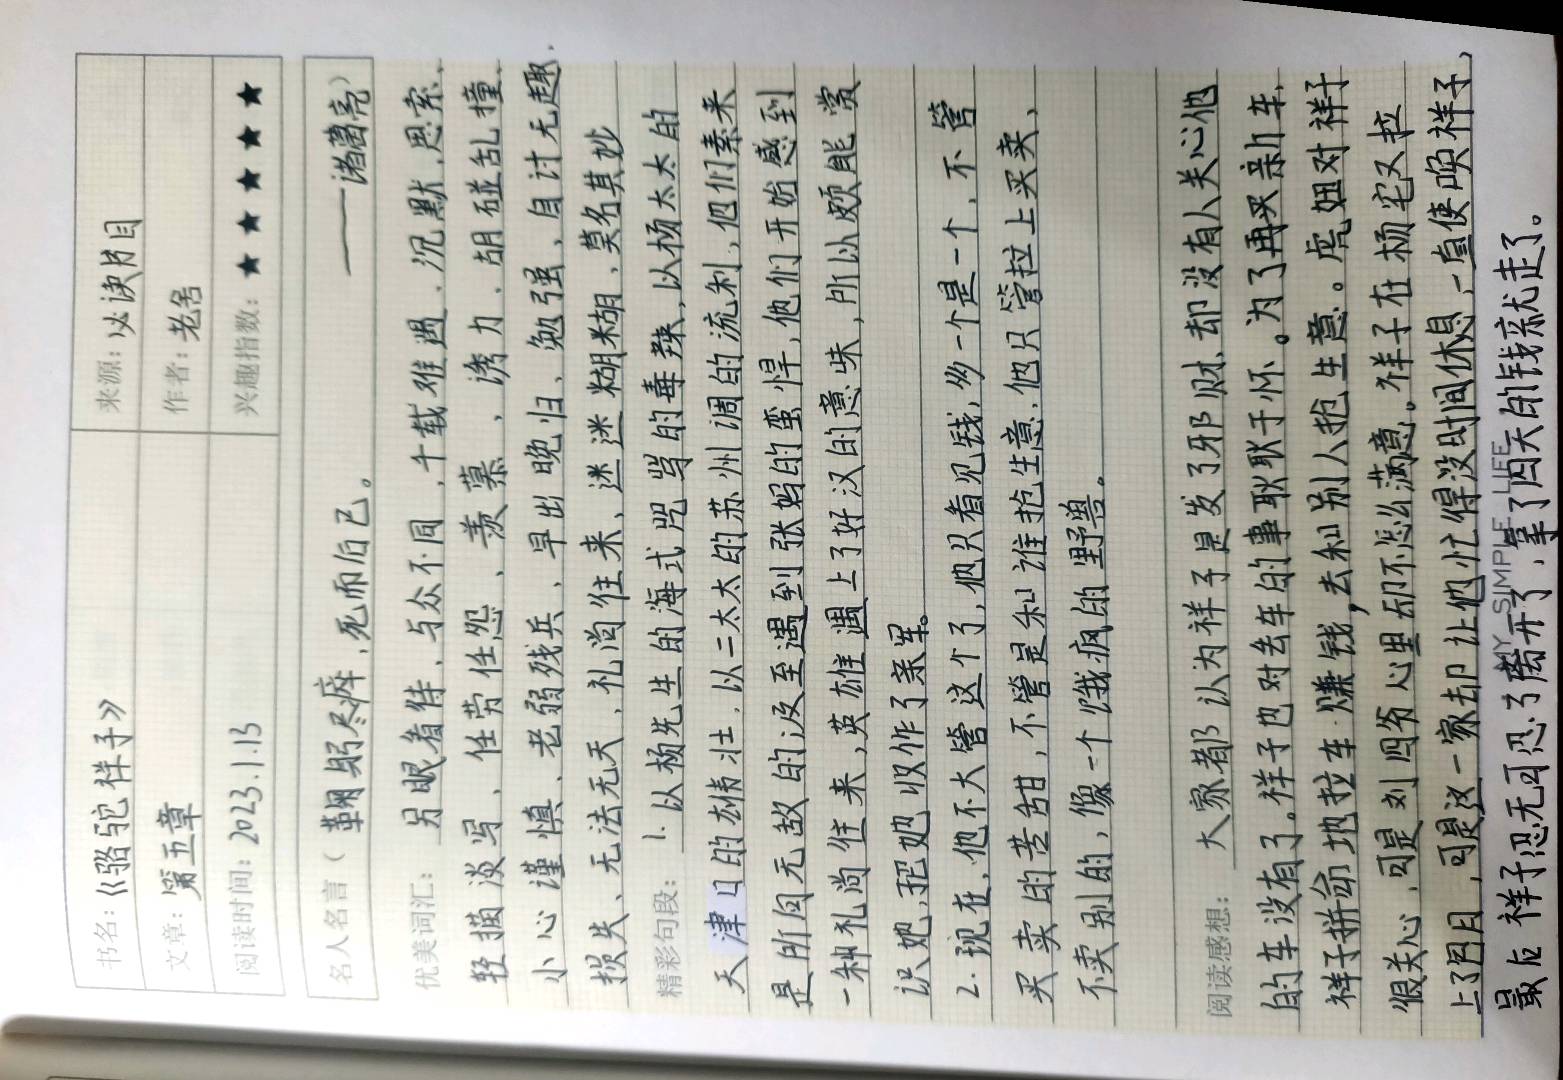 书名：《骆驼祥子》 来源：必读书目
文章：第五章 作者：老舍
阅读时间：2023.1.13 兴趣指数：★★★★★
名人名言（鞠躬尽瘁，死而后已。 ——诸葛亮）
优美词汇：另眼看待、与众不同、千载难遇、沉默、思索、
轻描淡写、任劳任怨、羡慕、诱力、胡碰乱撞、
小心谨慎、老弱残兵、早出晚归、勉强、自讨无趣、
损失、无法无天、礼尚往来、迷迷糊糊、莫名其妙
精彩句段：1.以杨先生的海式咒骂的毒辣，以杨太太的
天津口的雄壮，以二太太的苏州调的流利，他们素来
是所向无敌的；及至遇到张妈的蛮悍，他们开始感到
一种礼尚往来，英雄遇上了好汉的意味，所以颇能赏
识她，把她收作了亲军。
2.现在，他不大管这个了，他只看见钱，多一个是一个，不管
买卖的苦甜，不管是和谁抢生意，他只管拉上买卖，
不卖别的，像一个饿疯的野兽。
阅读感想：大家都认为祥子是发了邪财，却没有人关心他
的车没有了。祥子也对丢车的事耿耿于怀。为了再买新车，
祥子拼命地拉车赚钱，去和别人抢生意。虎妞对祥子
很关心，可是刘四爷心里却不怎么满意。祥子在杨宅又拉
上了包月，可是这一家却让他忙得没时间休息，一直使唤祥子，
MY SIMPLE LIFE
最后祥子忍无可忍了离开了，拿了四天的钱就走了。